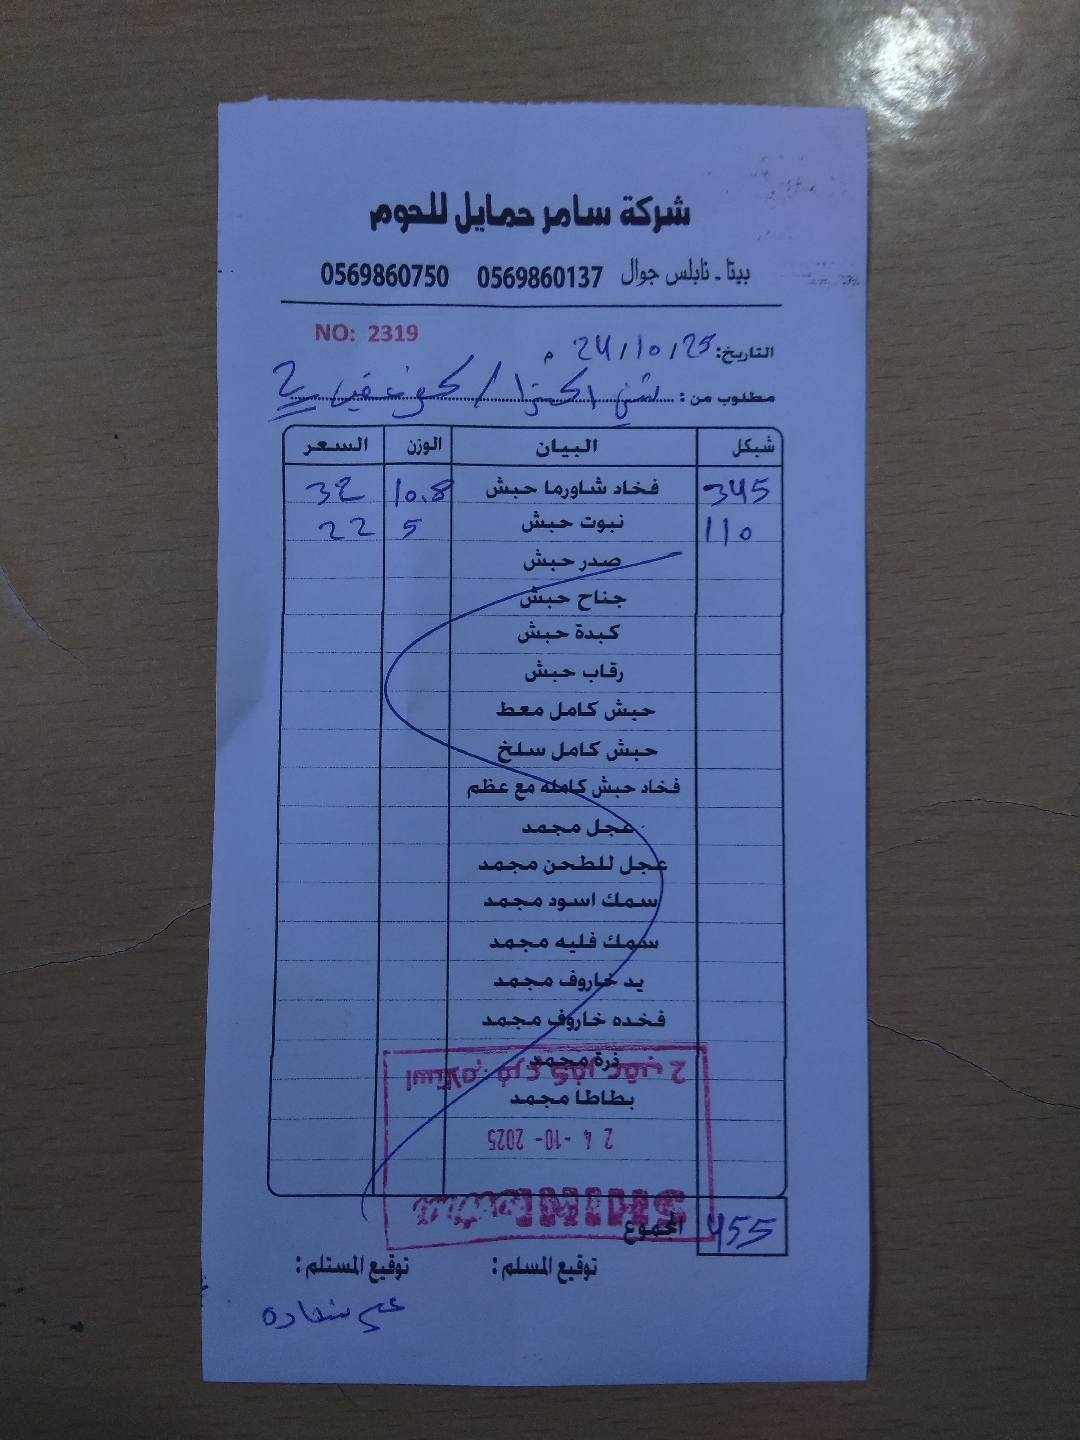 شركة سامر حمايل للحوم
بيتا - نابلس جوال 0569860137 0569860750
NO: 2319
التاريخ: 25/10/24 م
مطلوب من: / 2
شيكل البيان الوزن السعر
345 فخاد شاورما حبش 10.8 32
110 نبوت حبش 5 22
صدر حبش
جناح حبش
كبدة حبش
رقاب حبش
حبش كامل معط
حبش كامل سلخ
فخاد حبش كامله مع عظم
عجل مجمد
عجل للطحن مجمد
سمك اسود مجمد
سمك فليه مجمد
يد خاروف مجمد
فخده خاروف مجمد
ذرة مجمد
استلام فرع كفر عقب 2
بطاطا مجمد
24-10-2025
455 المجموع
توقيع المسلم: توقيع المستلم: